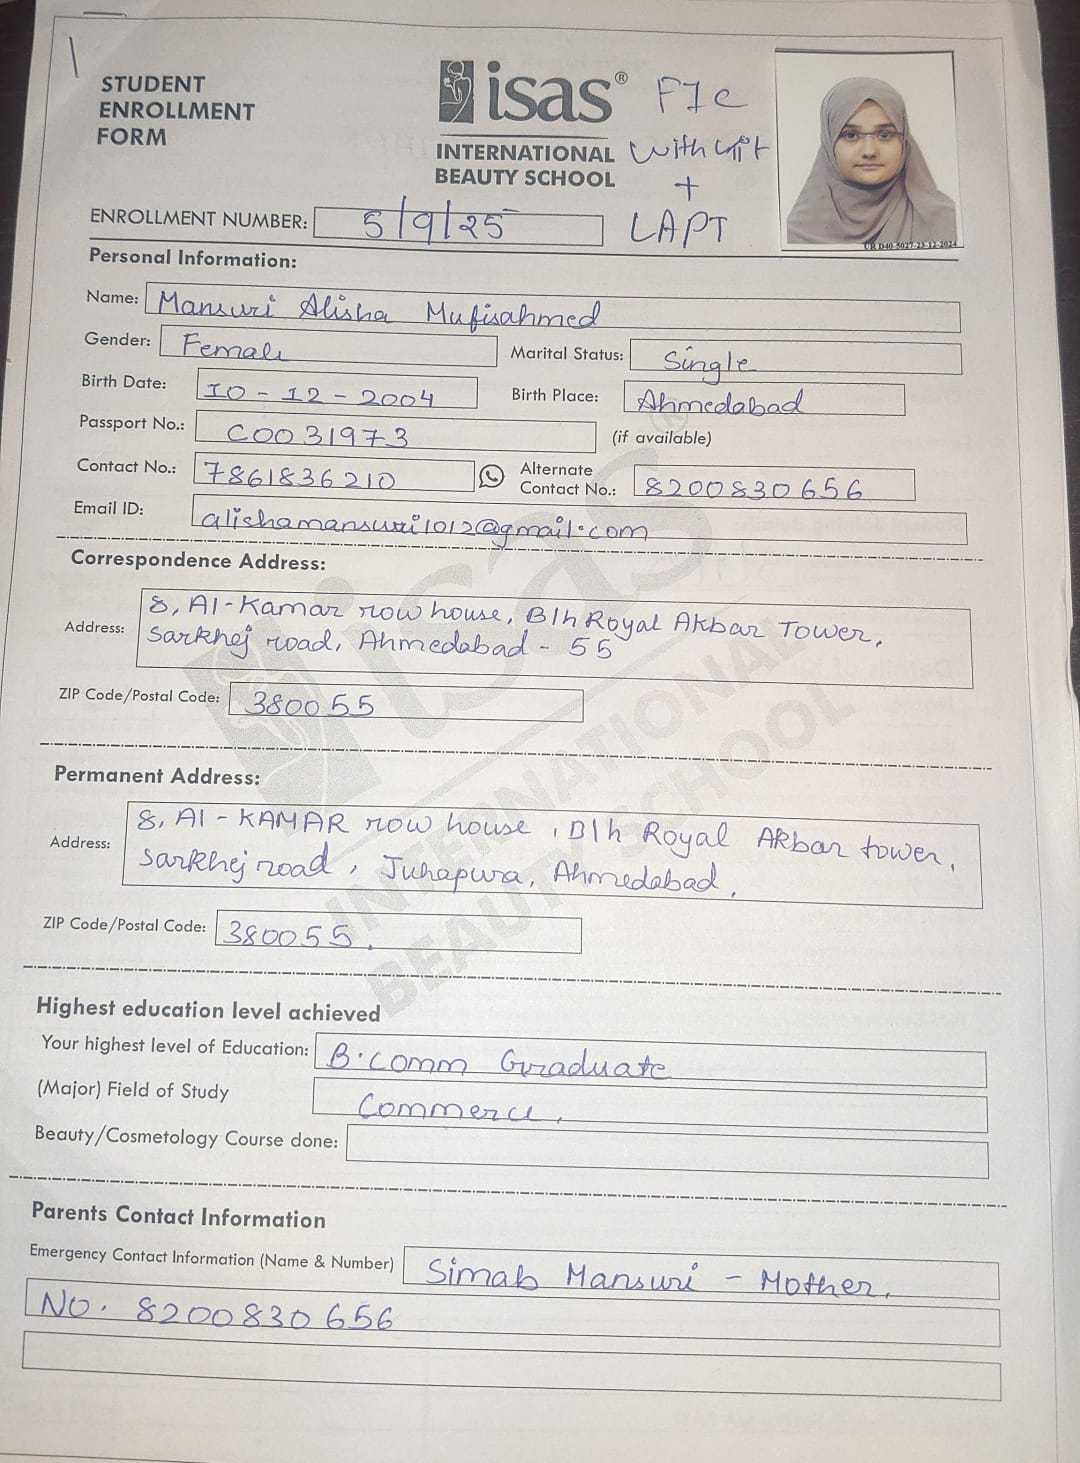 STUDENT
ENROLLMENT
FORM
isas®
INTERNATIONAL
BEAUTY SCHOOL
FIC
with
+
LAPT
UR D40-5027-23-12-2024
ENROLLMENT NUMBER: 5/9/25
Personal Information:
Name: Mansuri Alisha Mufisahmed
Gender: Female
Marital Status: Single
Birth Date: 10-12-2004
Birth Place: Ahmedabad
Passport No.: C0031973
(if available)
Contact No.: 7861836210
Alternate
Contact No.: 8200830656
Email ID: alishamansuri1012@gmail.com
Correspondence Address:
Address: 8, Al-Kamar row house, B/h Royal Akbar Tower,
Sarkhej road, Ahmedabad - 55
ZIP Code/Postal Code: 380055
Permanent Address:
Address: 8, Al-KAMAR row house, B/h Royal Akbar tower,
Sarkhej road, Juhapura, Ahmedabad,
ZIP Code/Postal Code: 380055.
Highest education level achieved
Your highest level of Education: B.comm Graduate
(Major) Field of Study Commerce,
Beauty/Cosmetology Course done:
Parents Contact Information
Emergency Contact Information (Name & Number) Simab Mansuri - Mother,
No. 8200830656
isas®
INTERNATIONAL
BEAUTY SCHOOL